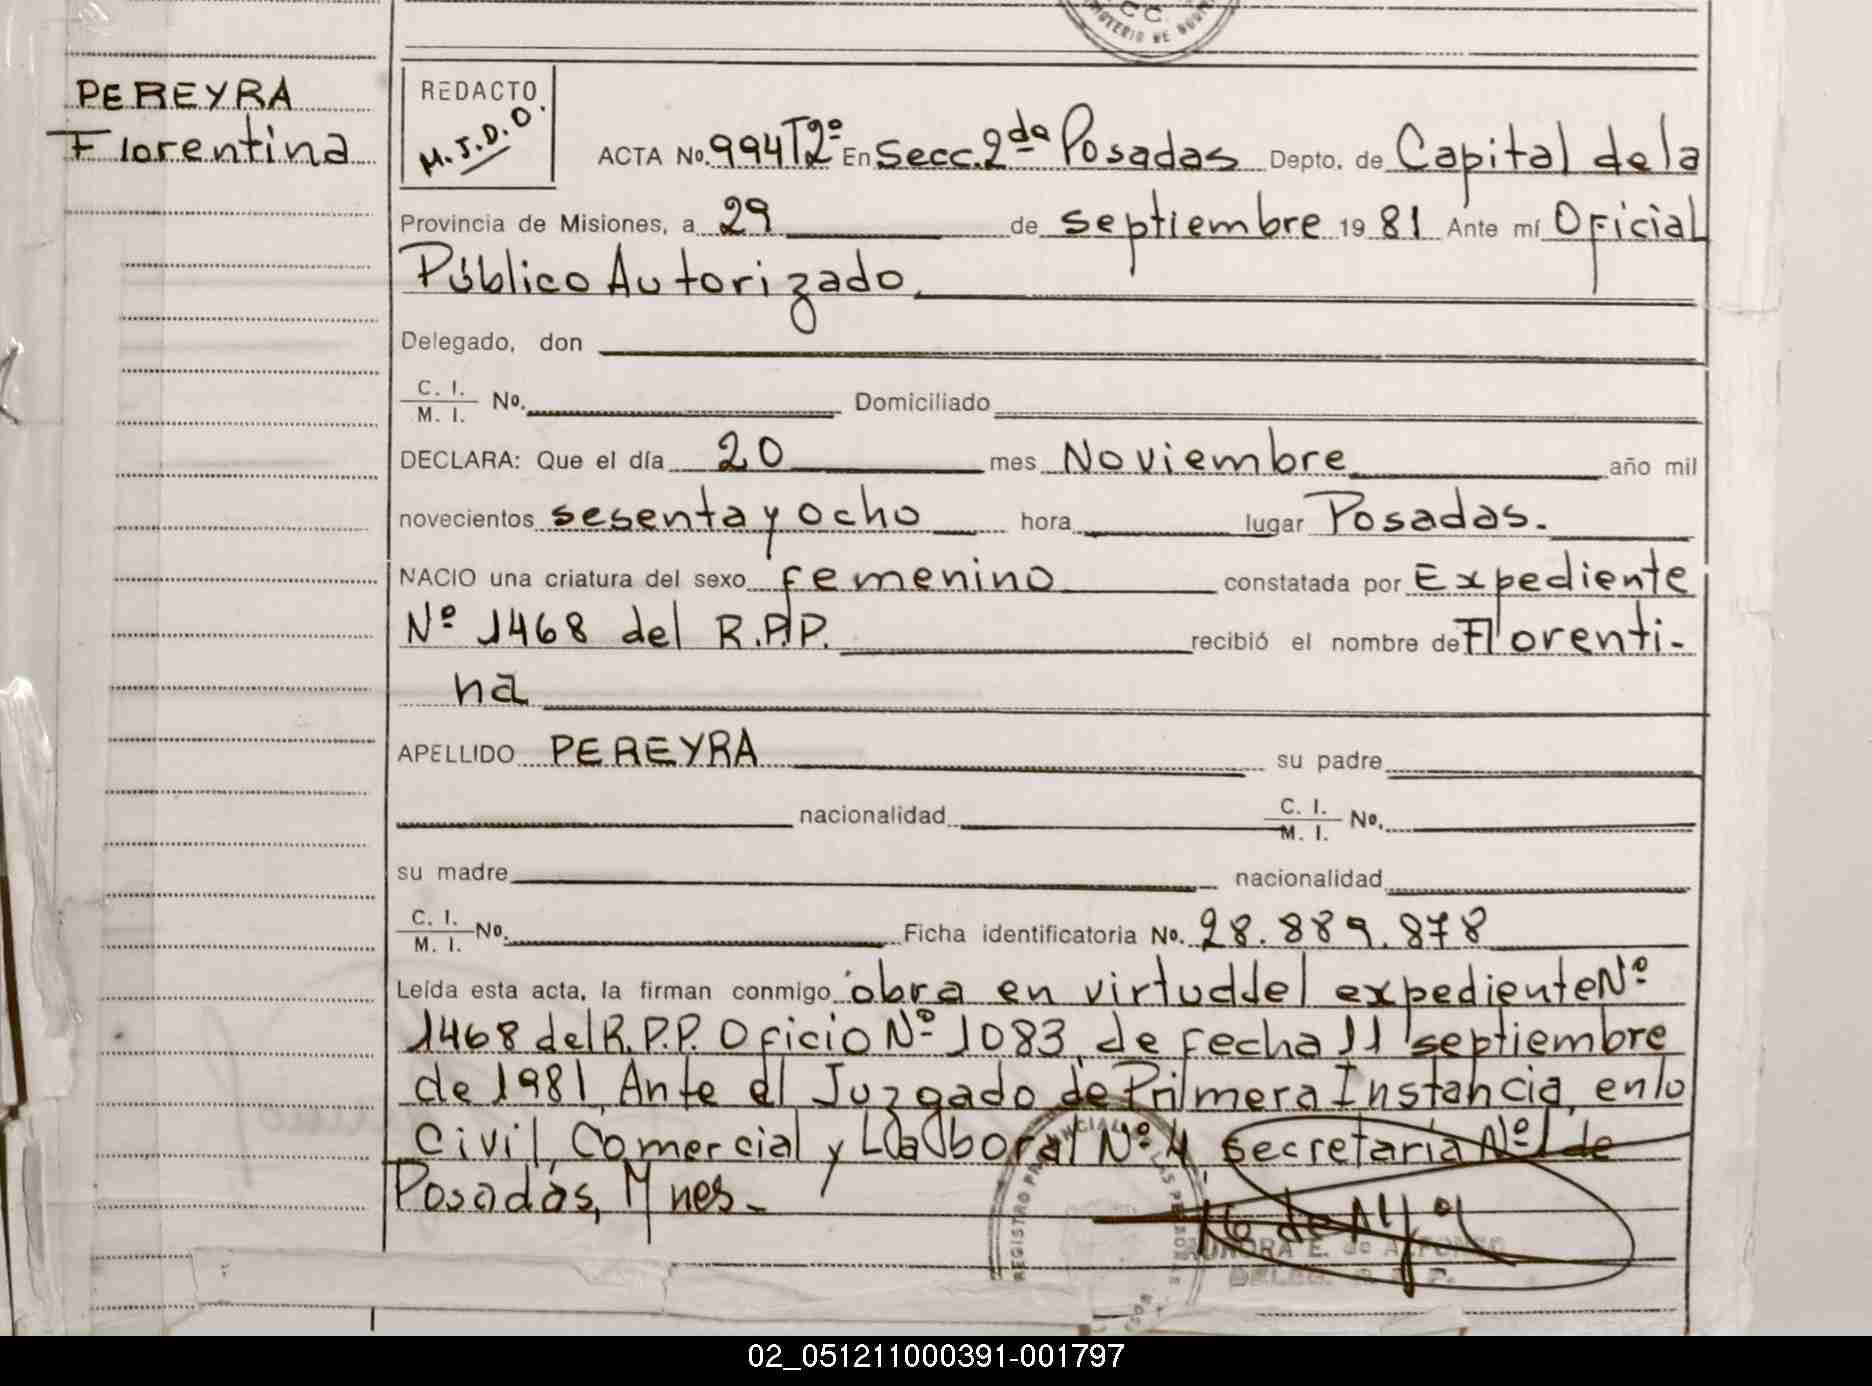 C C
MINISTERIO DE
PEREYRA
Florentina
REDACTO
M.J.D.O.
ACTA No. 994T2º En Secc. 2da Posadas Depto. de Capital de la
Provincia de Misiones, a 29 de septiembre 1981 Ante mí Oficial
Público Autorizado
Delegado, don
C. I. / M. I. No. Domiciliado
DECLARA: Que el día 20 mes Noviembre año mil
novecientos sesenta y ocho hora lugar Posadas.
NACIO una criatura del sexo femenino constatada por Expediente
Nº 1468 del R.P.P. recibió el nombre de Florenti-
na
APELLIDO PEREYRA su padre
nacionalidad C. I. / M. I. No.
su madre nacionalidad
C. I. / M. I. No. Ficha identificatoria No. 28.889.878
Leída esta acta, la firman conmigo obra en virtud del expediente Nº
1468 del R.P.P. Oficio Nº 1083, de fecha 11 septiembre
de 1981, Ante el Juzgado de Primera Instancia, en lo
Civil, Comercial y Laboral Nº 4, secretaría Nº 1 de
Posadas, Mnes.-
REGISTRO PROVINCIAL DE LAS PERSONAS
AURORA E. de ALFONSO
DELEG. R. P. P.
02_051211000391-001797